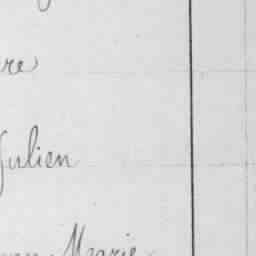 re
Julien
Marie